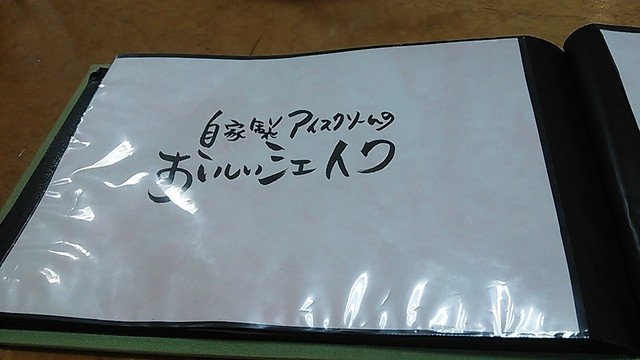 自家製アイスクリームの
おいしいシェイク